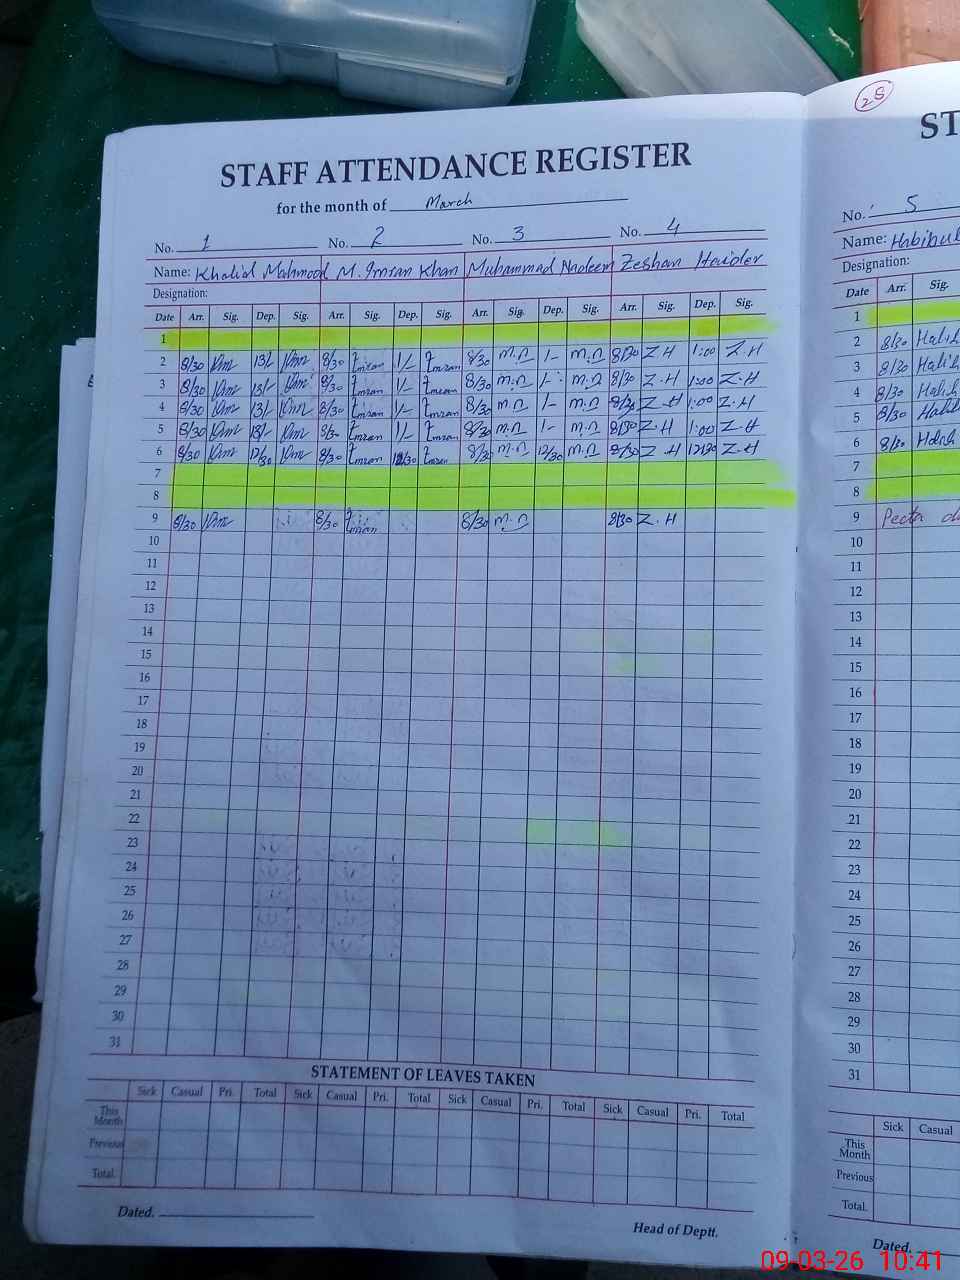 STAFF ATTENDANCE REGISTER
for the month of March
No. 1 No. 2 No. 3 No. 4
Name: Khalid Mahmood M. Imran Khan Muhammad Nadeem Zeshan Haider
Designation:
Date Arr. Sig. Dep. Sig. Arr. Sig. Dep. Sig. Arr. Sig. Dep. Sig. Arr. Sig. Dep. Sig.
1
2 8/30 13/- 8/30 Imran 1/- Imran 8/30 m.n 1- m.n 8/30 Z.H 1:00 Z.H
3 8/30 13/- 8/30 Imran 1/- Imran 8/30 m.n 1- m.n 8/30 Z.H 1:00 Z.H
4 8/30 13/- 8/30 Imran 1/- Imran 8/30 m.n 1- m.n 8/30 Z.H 1:00 Z.H
5 8/30 13/- 8/30 Imran 1/- Imran 8/30 m.n 1- m.n 8/30 Z.H 1:00 Z.H
6 8/30 12/30 8/30 Imran 12/30 Imran 8/30 m.n 12/30 m.n 8/30 Z.H 12:30 Z.H
7
8
9 8/30 8/30 Imran 8/30 m.n 8/30 Z.H
10
11
12
13
14
15
16
17
18
19
20
21
22
23
24
25
26
27
28
29
30
31
STATEMENT OF LEAVES TAKEN
Sick Casual Pri. Total Sick Casual Pri. Total Sick Casual Pri. Total Sick Casual Pri. Total
This Month
Previous
Total.
Dated.
Head of Deptt.
25
ST
No. 5
Name: Habibul
Designation:
Date Arr. Sig.
1
2 8/30
3 8/30
4 8/30
5 8/30
6 8/30
7
8
9
10
11
12
13
14
15
16
17
18
19
20
21
22
23
24
25
26
27
28
29
30
31
Sick Casual
This Month
Previous
Total.
Dated.
09-03-26 10:41